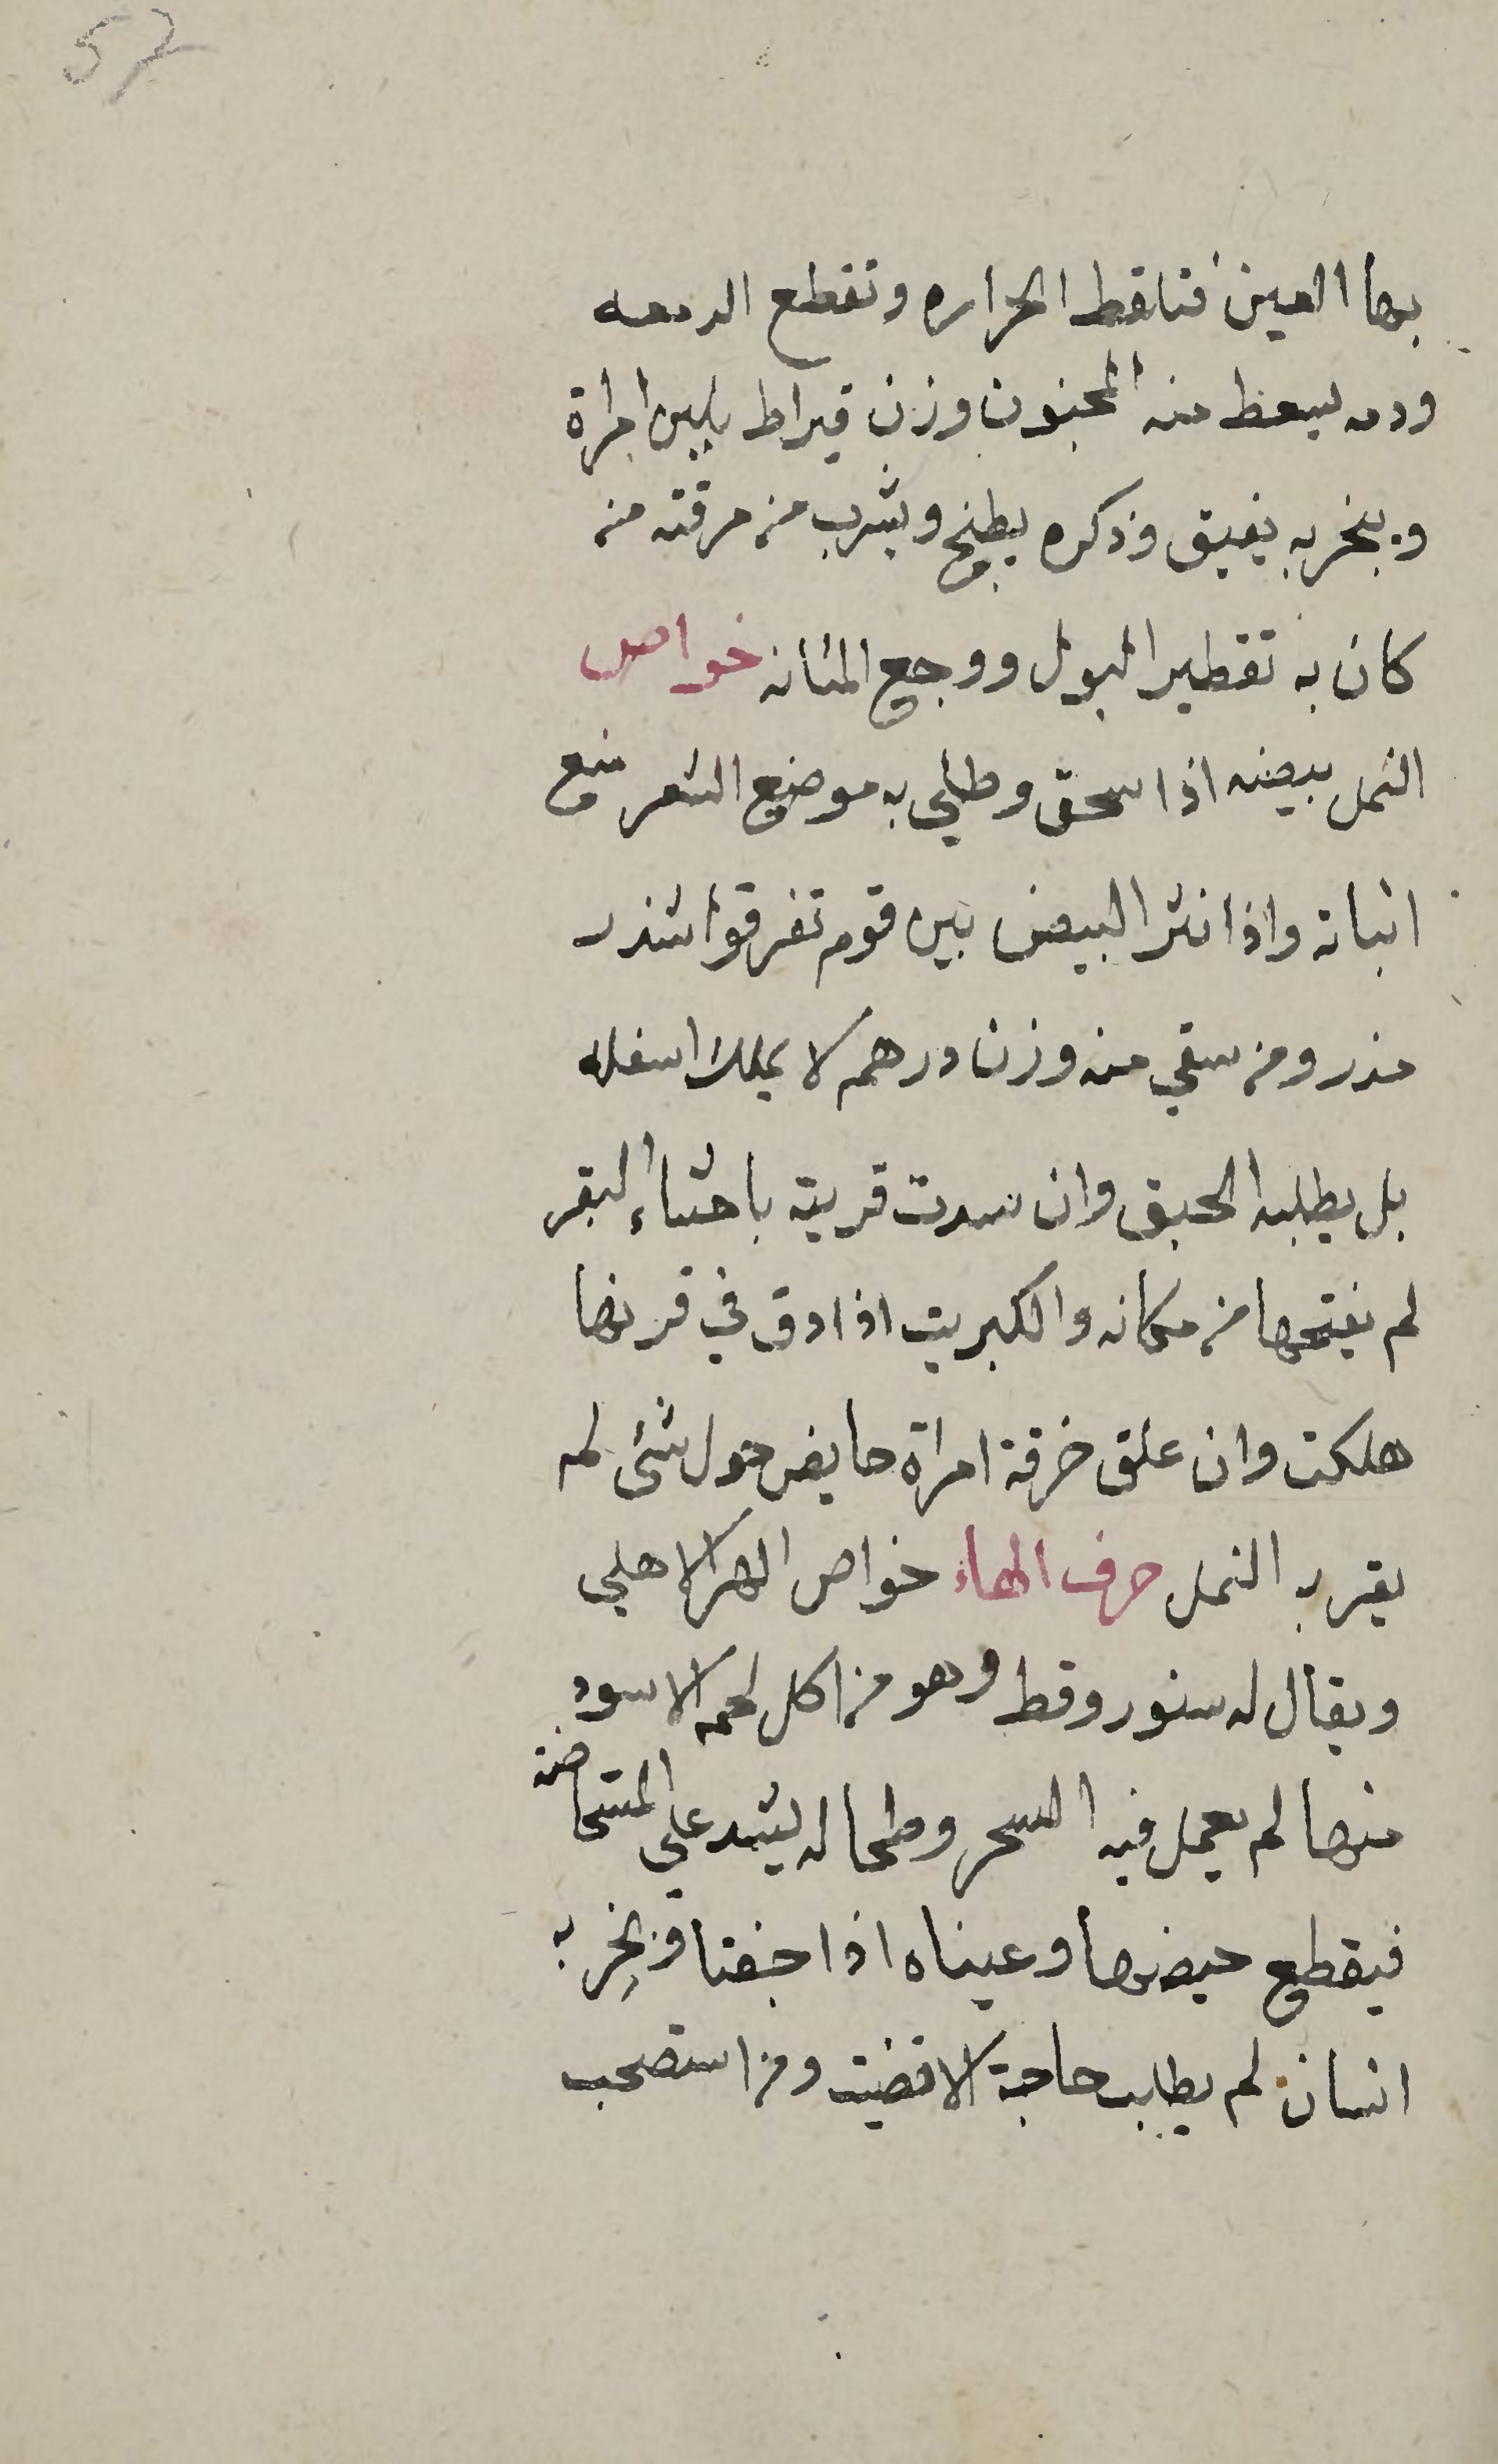 57
بها العين فتلقط الحراره وتقطع الدمعه
ودمه يسعط منه المجنون وزن قيراط بلبن امراة
ويبخر به يفيق وذكره يطبخ ويشرب من مرقته من
كان به تقطير البول ووجع المثانه خواص
النمل بيضه اذا سحق وطلي به موضع الشعر منع
انباته واذا نثر البيض بين قوم تفرقوا شذر
مذر ومن سقي منه وزن درهم لا يملك اسفله
بل يطلبه الحبق وان سدت قريته باخثاء البقر
لم يفتحها من مكانه والكبريت اذا دق في قريتها
هلكت وان علق خرقة امراة حايض حول شئ لم
يقربه النمل حرف الهاء خواص الهر الاهلي
ويقال له سنور وقط وهو من اكل لحمه الاسود
منها لم يعمل فيه السحر وطحاله يشد على المستحاضة
فيقطع حيضها وعيناه اذا جففتا وبخر به
انسان لم يطلب حاجة الا قضيت ومن استصحب